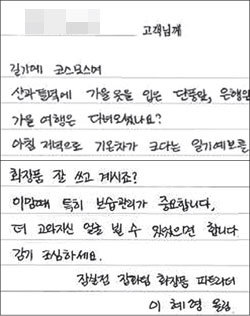 고객님께
길가에 코스모스며
산과들녘에 가을옷을 입은 단풍잎, 은행잎
가을 여행은 다녀오셨나요?
아침 저녁으로 기온차가 크다는 일기예보를
화장품 잘 쓰고 계시죠?
이맘때 특히 보습관리가 중요합니다.
더 고와지신 얼굴 뵐 수 있었으면 합니다
감기 조심하세요.
화장품 파트너
이 혜경 올림